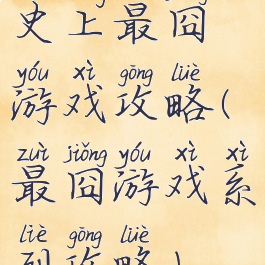 史上最囧
yóu xì gōng lüè
游戏攻略(
zuì jiǒng yóu xì xì
最囧游戏系
liè gōng lüè
列攻略)